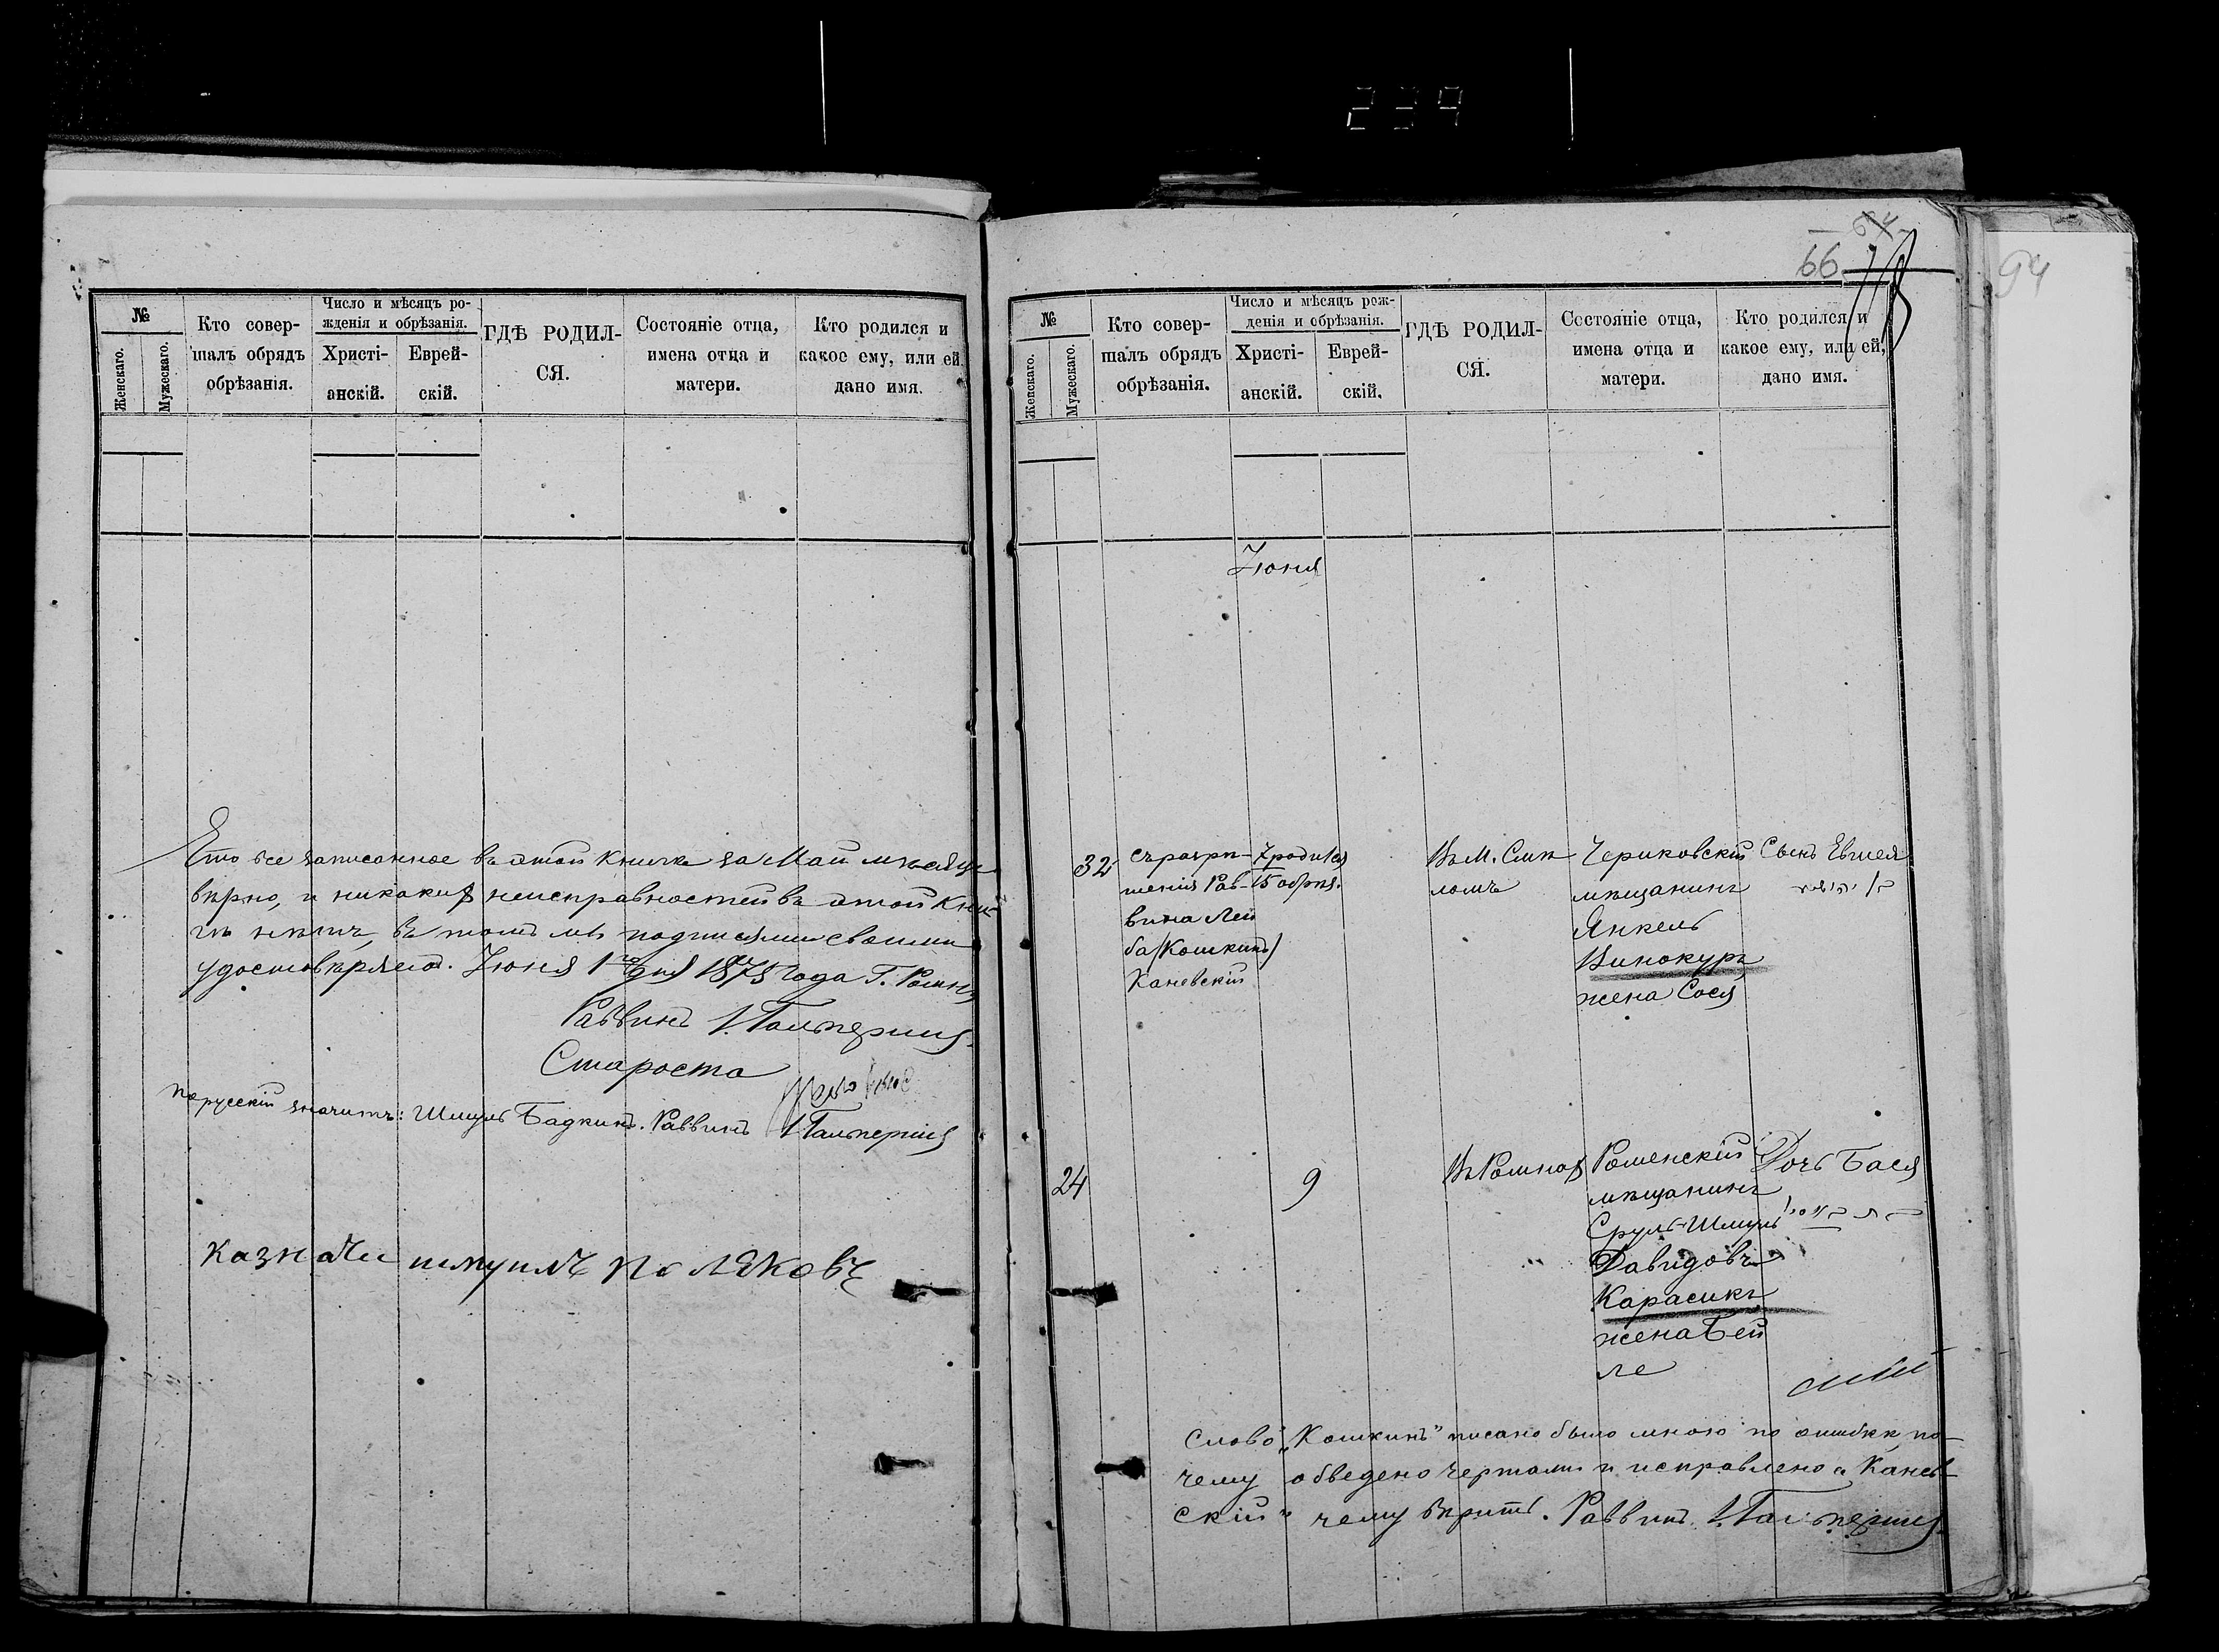 239
№
Женскаго.
Мужескаго.
Кто совер-
шалъ обрядъ
обрѣзанія.
Число и мѣсяцъ ро-
жденія и обрѣзанія.
Христі-
анскій.
Еврей-
скій.
ГДѢ РОДИЛ-
СЯ.
Состояніе отца,
имена отца и
матери.
Кто родился и
какое ему, или ей
дано имя.
Што все записанное въ этой книгѣ за Май мѣсяцъ
вѣрно, и никакихъ неисправностей въ этой кни-
гѣ нѣтъ, въ томъ мы подписями своими
удостовѣряемъ. Іюня 1го дня 1875 года Г. Ромны
Раввинъ І. Гальперинъ
Староста
порусскій значитъ: Шмуль Бадкинъ. Раввинъ І. Гальперинъ
казначи шмуилъ поляковъ
66
94
№
Женскаго.
Мужескаго.
Кто совер-
шалъ обрядъ
обрѣзанія.
Число и мѣсяцъ рож-
денія и обрѣзанія.
Христі-
анскій.
Еврей-
скій.
ГДѢ РОДИЛ-
СЯ.
Состояніе отца,
имена отца и
матери.
Кто родился и
какое ему, или ей,
дано имя.
Іюня
32
съ разрѣ-
шенія Рав-
вина Лей
ба /Кошкинъ/
Каневскій
7 родился
15 обрѣз.
Въ М. Смѣ
ломъ
Чериковскій
мѣщанинъ
Янкель
Винокуръ
жена Сося
Сынъ Евгией
24
9
Въ Ромнахъ
Роменскій
мѣщанинъ
Сруль-Шмуль
Давидовъ
Карасикъ
жена Бей
ле
Дочь Бася
Слово „Кошкинъ" писано было мною по ошибкѣ, по-
чему обведено чертами и исправлено „Канев-
скій" чему вѣрить. Раввинъ І. Гальперинъ